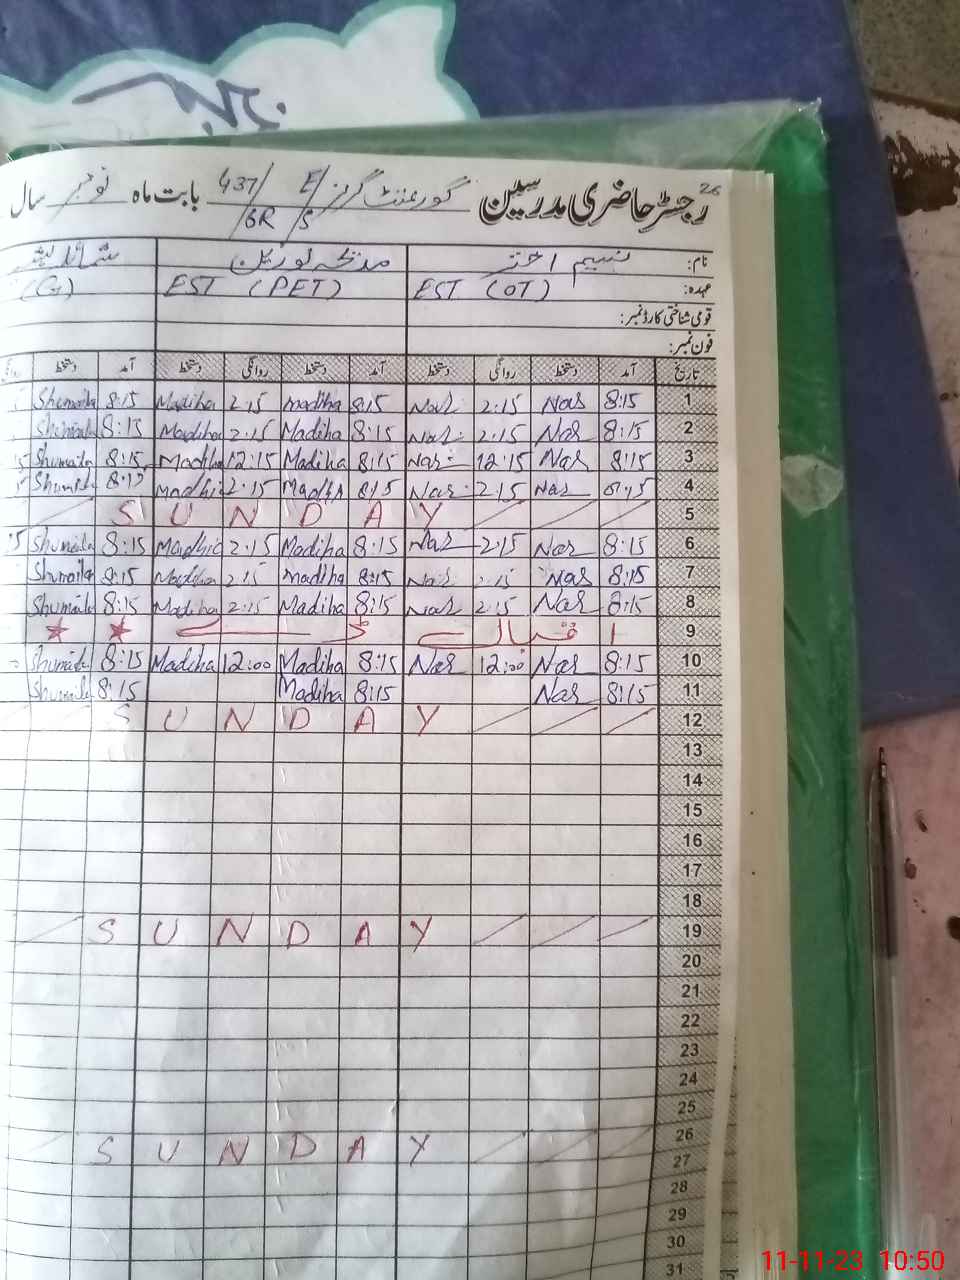 26
رجسٹر حاضری مدرسین گورنمنٹ گرلز E/S 437/GR بابت ماہ نومبر سال
نام: نسیم اختر
عہدہ: EST (OT) EST (PET)
قومی شناختی کارڈ نمبر:
فون نمبر:
تاریخ آمد دستخط روانگی دستخط آمد دستخط روانگی دستخط آمد دستخط
1 8:15 Nas 2:15 Nas 8:15 madiha 2:15 Madiha 8:15 Shumaila
2 8:15 Nas 2:15 Nas 8:15 Madiha 2:15 Madiha 8:15 Shumaila
3 8:15 Nas 12:15 Nas 8:15 Madiha 12:15 Madiha 8:15 Shumaila
4 8:15 Nas 2:15 Nas 8:15 Madiha 2:15 Madhia 8:15 Shumaila
5 SUNDAY
6 8:15 Nas 2:15 Nas 8:15 Madiha 2:15 Madhia 8:15 Shumaila
7 8:15 Nas 2:15 Nas 8:15 madiha 2:15 Madiha 8:15 Shumaila
8 8:15 Nas 2:15 Nas 8:15 Madiha 2:15 Madiha 8:15 Shumaila
9 اقبال ڈے
10 8:15 Nas 12:00 Nas 8:15 Madiha 12:00 Madiha 8:15 Shumaila
11 8:15 Nas 8:15 Madiha 8:15 Shumaila
12 SUNDAY
13
14
15
16
17
18
19 SUNDAY
20
21
22
23
24
25
26 SUNDAY
27
28
29
30
31
11-11-23 10:50